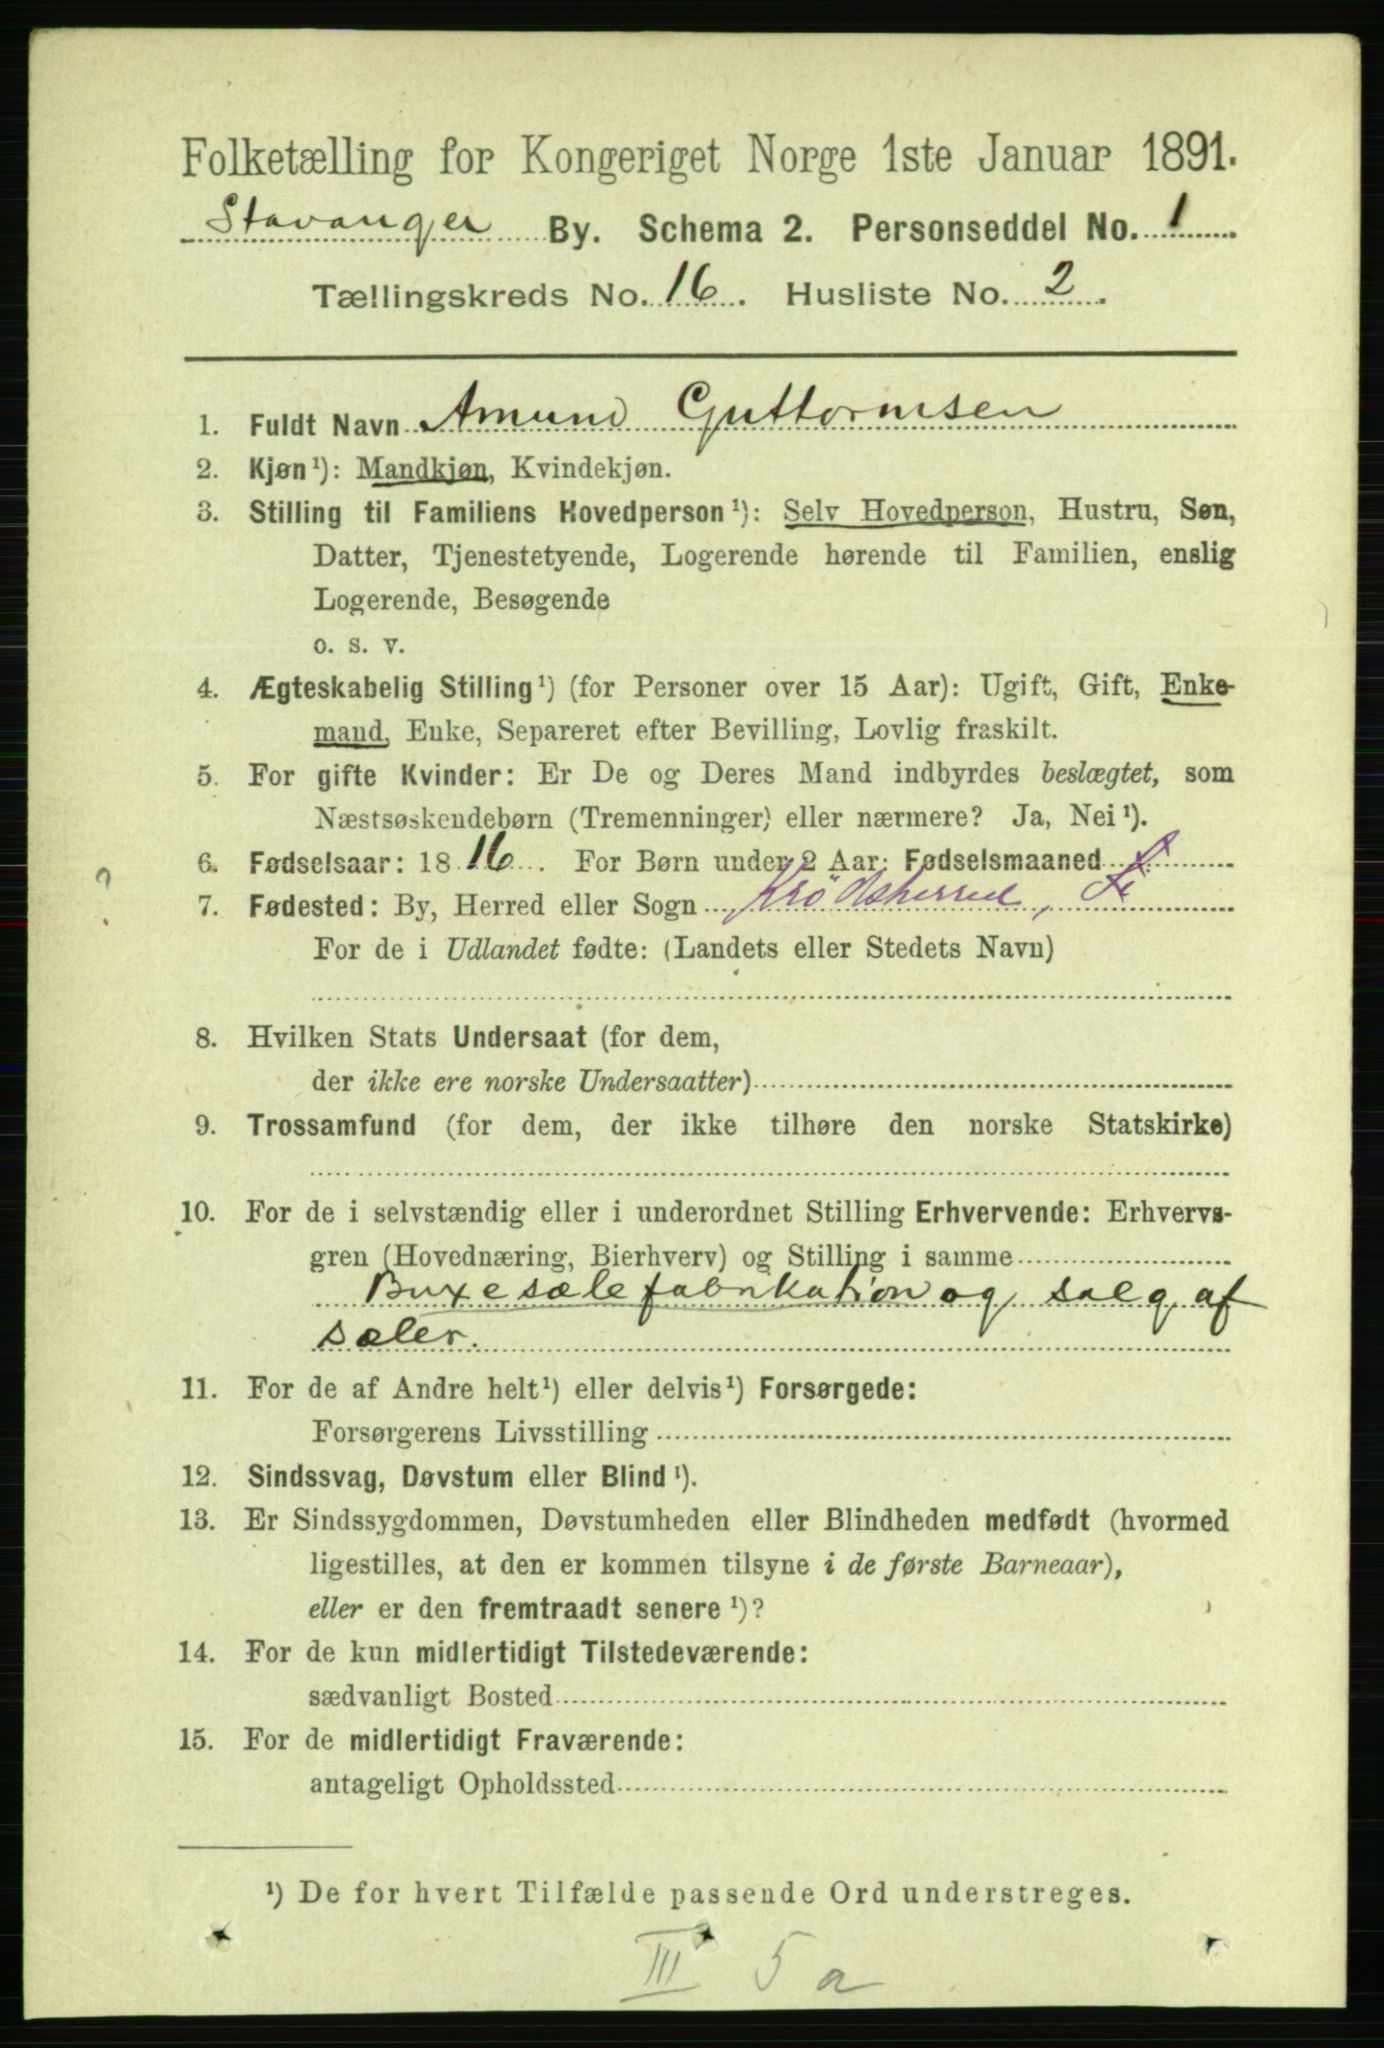 Folketælling for Kongeriget Norge 1ste Januar 1891.
Stavanger By. Schema 2. Personseddel No. 1
Tællingskreds No. 16. Husliste No. 2.
1. Fuldt Navn Amund Guttormsen
2. Kjøn¹): Mandkjøn, Kvindekjøn.
3. Stilling til Familiens Hovedperson¹): Selv Hovedperson, Hustru, Søn,
Datter, Tjenestetyende, Logerende hørende til Familien, enslig
Logerende, Besøgende
o. s. v.
4. Ægteskabelig Stilling¹) (for Personer over 15 Aar): Ugift, Gift, Enke-
mand, Enke, Separeret efter Bevilling, Lovlig fraskilt.
5. For gifte Kvinder: Er De og Deres Mand indbyrdes beslægtet, som
Næstsøskendebørn (Tremenninger) eller nærmere? Ja, Nei¹).
6. Fødselsaar: 1816. For Børn under 2 Aar: Fødselsmaaned
7. Fødested: By, Herred eller Sogn Krödsherred,
For de i Udlandet fødte: (Landets eller Stedets Navn)
8. Hvilken Stats Undersaat (for dem,
der ikke ere norske Undersaatter)
9. Trossamfund (for dem, der ikke tilhøre den norske Statskirke)
10. For de i selvstændig eller i underordnet Stilling Erhvervende: Erhvervs-
gren (Hovednæring, Bierhverv) og Stilling i samme
Buxesælefabrikation og salg af
sæler.
11. For de af Andre helt¹) eller delvis¹) Forsørgede:
Forsørgerens Livsstilling
12. Sindssvag, Døvstum eller Blind¹).
13. Er Sindssygdommen, Døvstumheden eller Blindheden medfødt (hvormed
ligestilles, at den er kommen tilsyne i de første Barneaar),
eller er den fremtraadt senere¹)?
14. For de kun midlertidigt Tilstedeværende:
sædvanligt Bosted
15. For de midlertidigt Fraværende:
antageligt Opholdssted
¹) De for hvert Tilfælde passende Ord understreges.
III 5 a